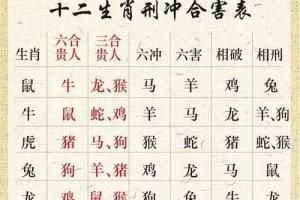 十二生肖刑冲合害表
生肖 六合贵人 三合贵人 六冲 六害 相破 相刑
鼠 牛 龙、猴 马 羊 鸡 兔
牛 鼠 蛇、鸡 羊 马 龙 羊、狗
虎 猪 马、狗 猴 蛇 猪 蛇、猴
兔 狗 羊、猪 鸡 龙 马 鼠
龙 鸡 鼠、猴 狗 兔 牛 龙